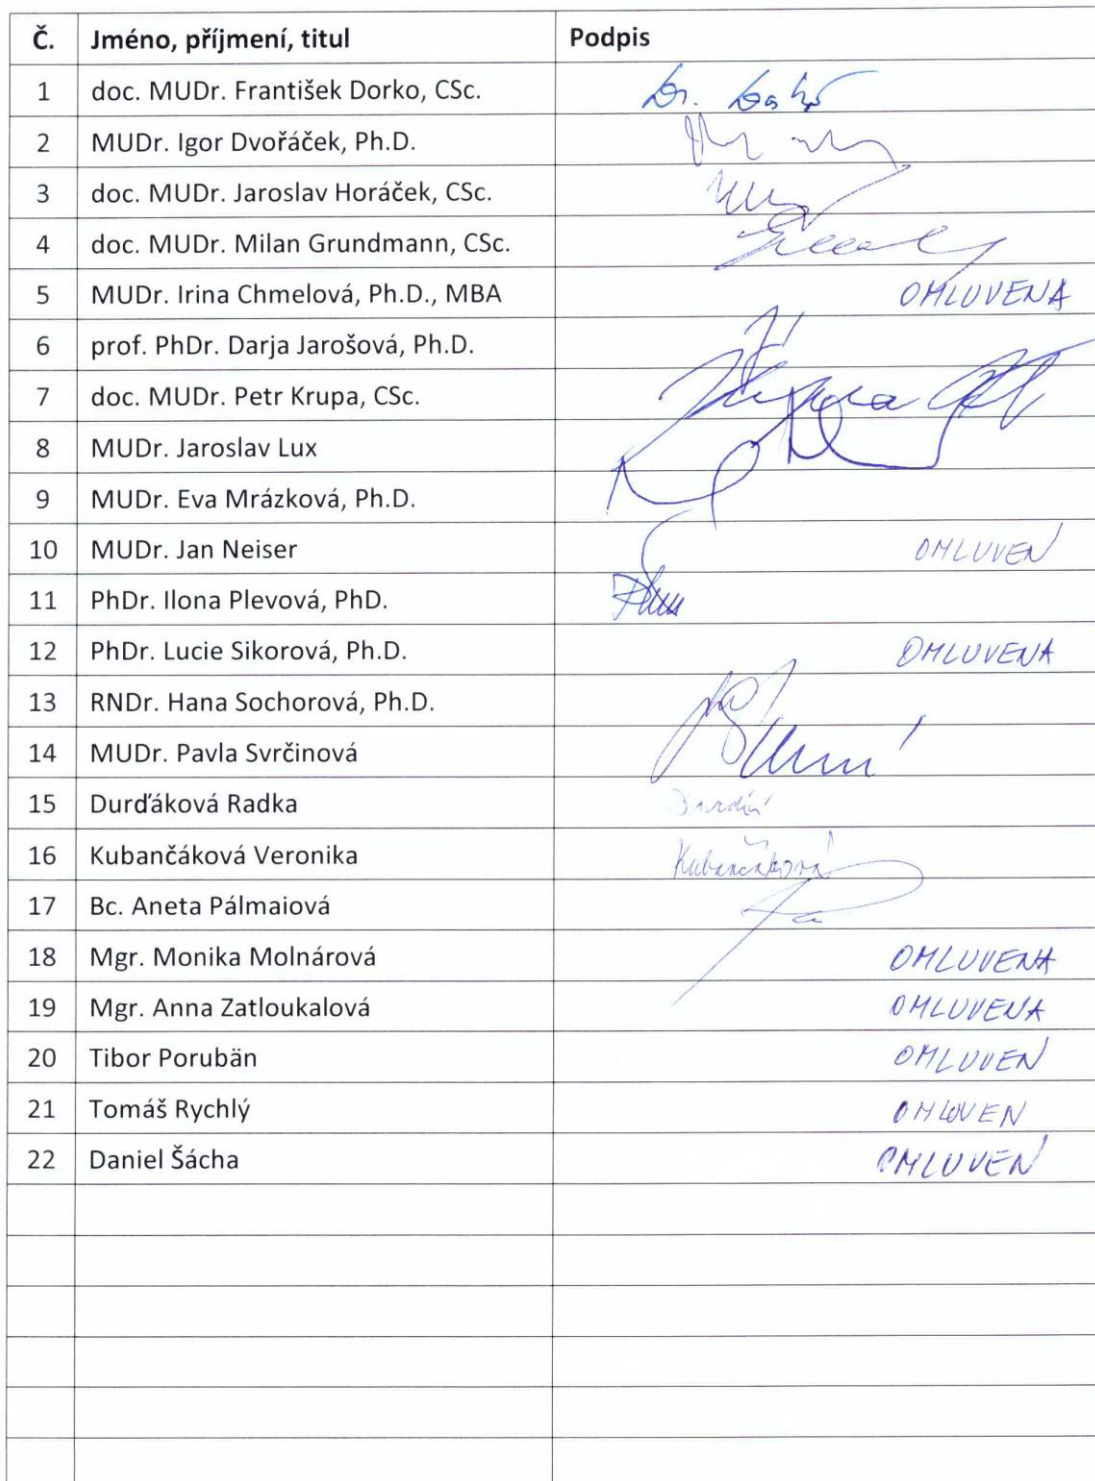 Č. Jméno, příjmení, titul Podpis
1 doc. MUDr. František Dorko, CSc.
2 MUDr. Igor Dvořáček, Ph.D.
3 doc. MUDr. Jaroslav Horáček, CSc.
4 doc. MUDr. Milan Grundmann, CSc.
5 MUDr. Irina Chmelová, Ph.D., MBA OMLUVENA
6 prof. PhDr. Darja Jarošová, Ph.D.
7 doc. MUDr. Petr Krupa, CSc.
8 MUDr. Jaroslav Lux
9 MUDr. Eva Mrázková, Ph.D.
10 MUDr. Jan Neiser OMLUVEN
11 PhDr. Ilona Plevová, PhD.
12 PhDr. Lucie Sikorová, Ph.D. OMLUVENA
13 RNDr. Hana Sochorová, Ph.D.
14 MUDr. Pavla Svrčinová
15 Durďáková Radka
16 Kubančáková Veronika Kubančáková
17 Bc. Aneta Pálmaiová
18 Mgr. Monika Molnárová OMLUVENA
19 Mgr. Anna Zatloukalová OMLUVENA
20 Tibor Porubän OMLUVEN
21 Tomáš Rychlý OMLUVEN
22 Daniel Šácha OMLUVEN